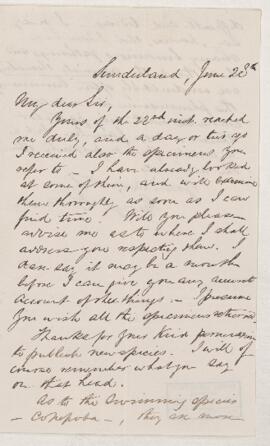 Sunderland, June 28th
My dear Sir,
Yours of the 22nd inst. reached
me duly, and a day or two ago
I received also the specimens you
refer to — I have already looked
at some of them, and will examine
them thoroughly as soon as I can
find time. Will you please
advise me as to where I shall
address you respecting them. I
dare say it may be a month
before I can give you any accurate
account of the things — I presume
you wish all the specimens returned.
Thanks for your kind permission
to publish new species. I will of
course remember what you say
on that head.
As to the swimming species
— Copepoda —, they are more